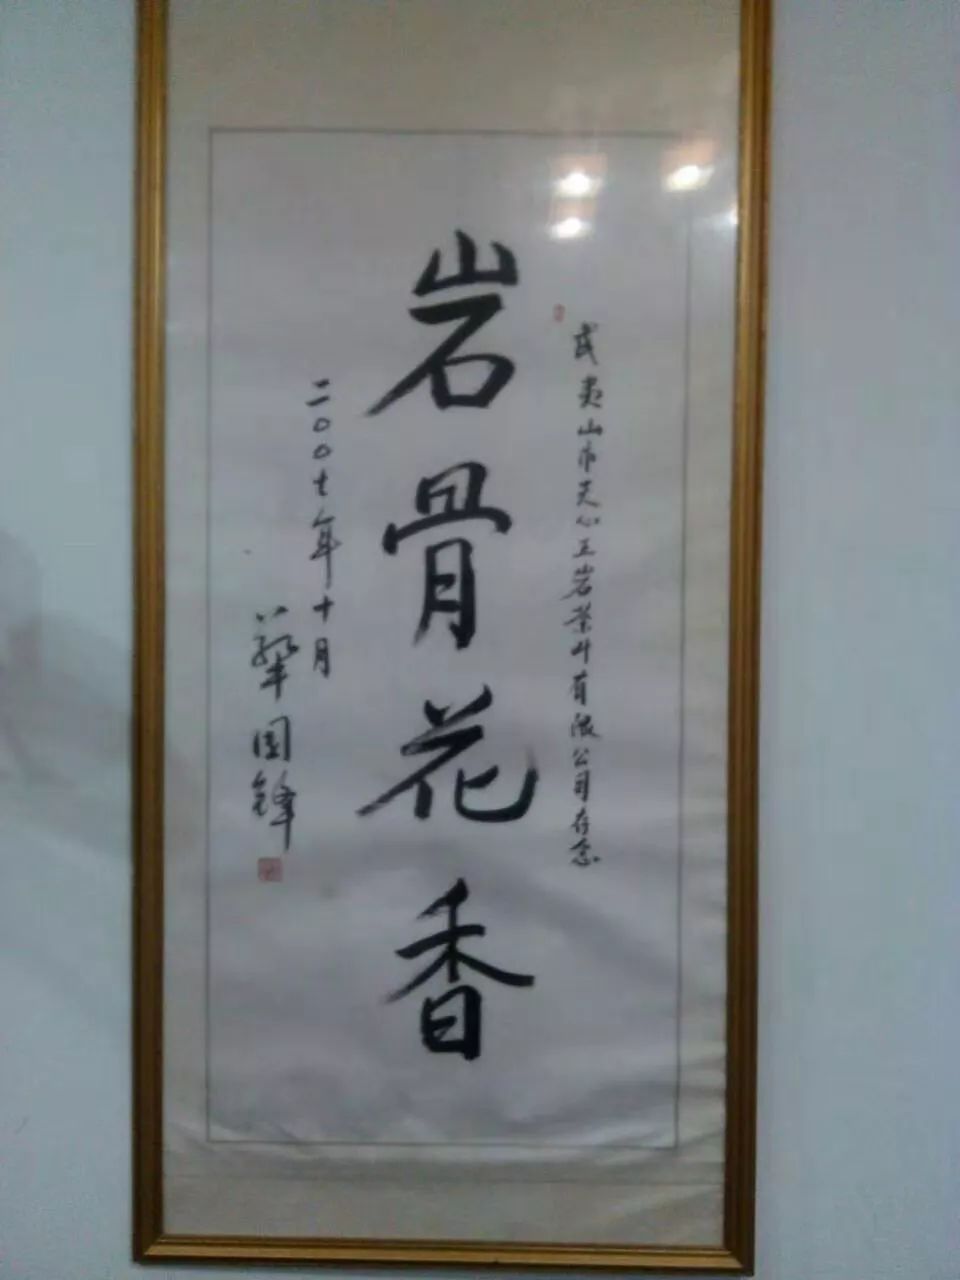 武夷山市天心正岩茶叶有限公司存念
岩骨花香
二〇〇七年十月
国锋